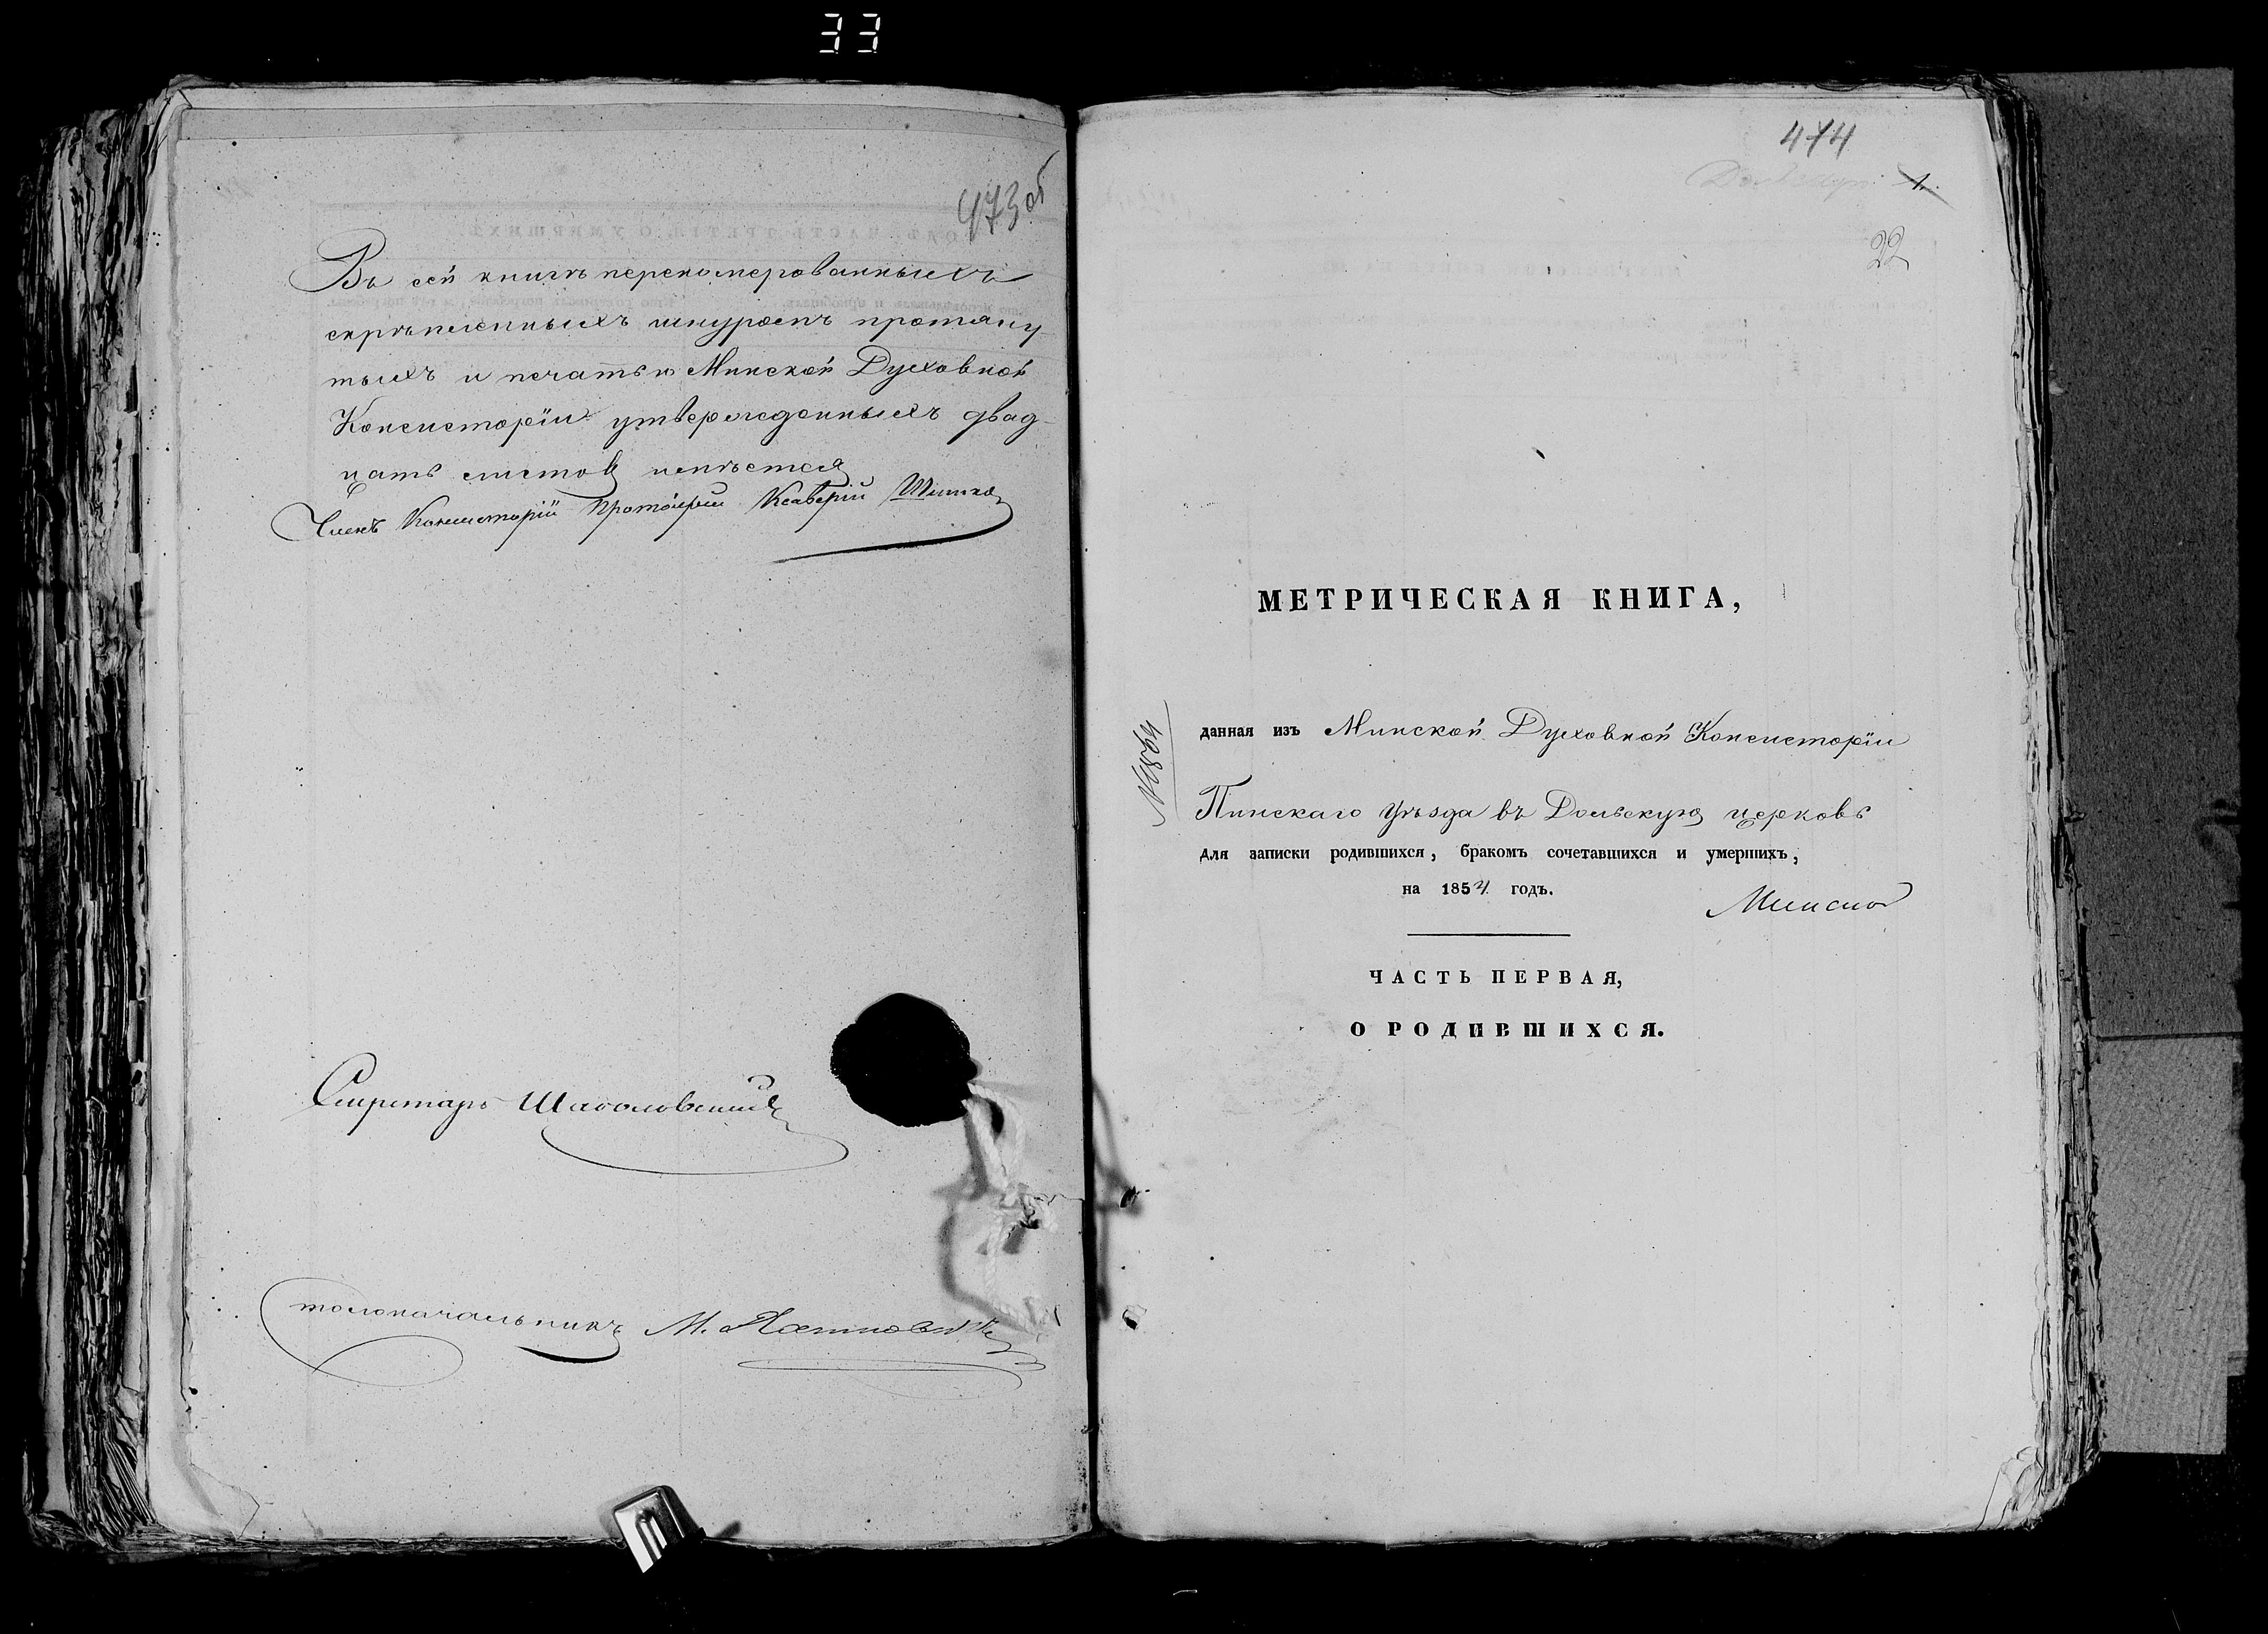 33
473 об
Въ сей книгѣ переномерованныхъ
скрѣпленныхъ шнуромъ протяну-
тыхъ и печатью Минской Духовной
Консисторіи утвержденныхъ двад-
цать листовъ имѣется
Членъ Консисторіи Протоіерей Ксаверій
Секретарь
Столоначальникъ М.
474
1.
22
МЕТРИЧЕСКАЯ КНИГА,
данная изъ Минской Духовной Консисторіи
Пинскаго уѣзда въ Дольскую церковь
для записки родившихся, бракомъ сочетавшихся и умершихъ,
на 1854 годъ.
ЧАСТЬ ПЕРВАЯ,
О РОДИВШИХСЯ.